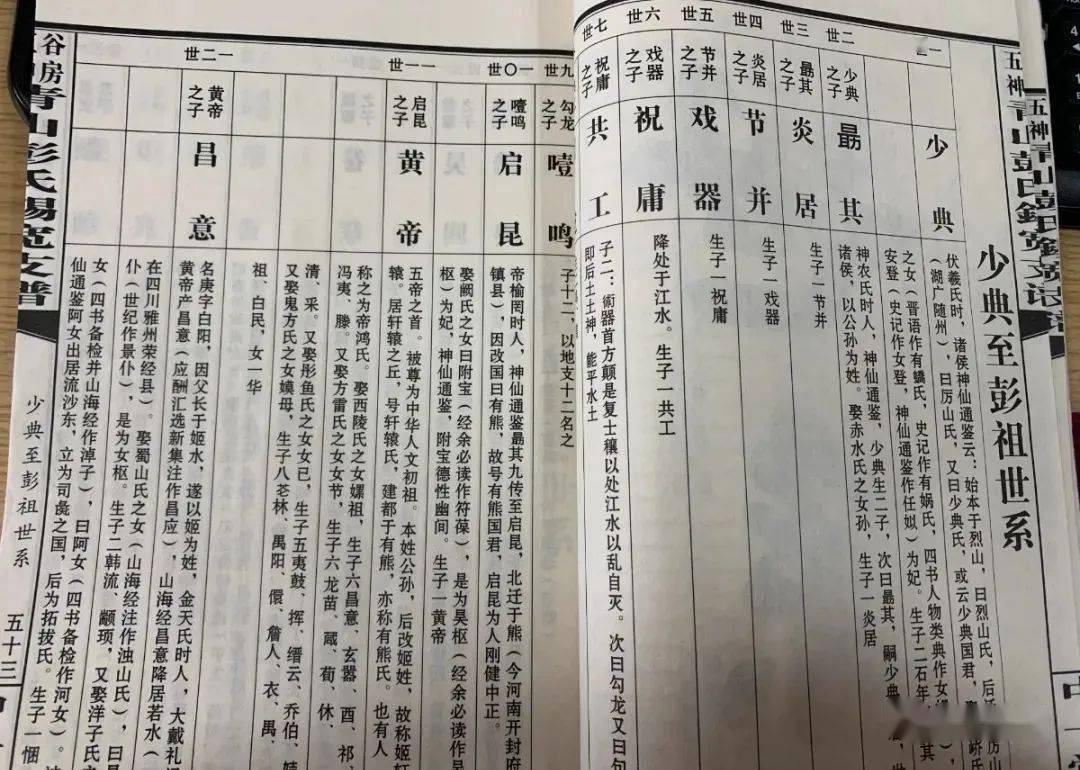 少典至彭祖世系
一
少典
伏羲氏时，诸侯神仙通鉴云：始本于烈山，曰烈山氏，后
（湖广随州），曰厉山氏，又曰少典氏，或云少典国君，
之女（晋语作有蟜氏，史记作有娲氏，四书人物类典作女
安登（史记作女登，神仙通鉴作任姒）为妃。生子二石年、
二世
少典之子
勗其
神农氏时人，神仙通鉴，少典生二子，次曰勗其，嗣少典
诸侯，以公孙为姓。娶赤水氏之女孙，生子一炎居
三世
勗其之子
炎居
生子一节并
四世
炎居之子
节并
生子一戏器
五世
节并之子
戏器
生子一祝庸
六世
戏器之子
祝庸
降处于江水。生子一共工
七世
祝庸之子
共工
子二：術器首方颠是复士穰以处江水以乱自灭。次曰勾龙又曰句
即后土土神，能平水土
九世
勾龙之子
噎鸣
子十二，以地支十二名之
一〇世
噎鸣之子
启昆
帝榆罔时人，神仙通鉴勗其九传至启昆，北迁于熊（今河南开封府
镇县），因改国曰有熊，故号有熊国君，启昆为人刚健中正。
娶阙氏之女曰附宝（经余必读作符葆），是为昊枢（经余必读作
枢）为妃，神仙通鉴，附宝德性幽间。生子一黄帝
一一世
启昆之子
黄帝
五帝之首。被尊为中华人文初祖。本姓公孙，后改姬姓，故称姬轩
辕。居轩辕之丘，号轩辕氏，建都于有熊，亦称有熊氏。也有人
称之为帝鸿氏。娶西陵氏之女嫘祖，生子六昌意、玄嚣、酉、祁、
冯夷、滕。又娶方雷氏之女女节，生子六龙苗、蒇、荀、休、
清、采。又娶彤鱼氏之女女巳，生子五夷鼓、挥、缙云、乔伯、姞
又娶鬼方氏之女嫫母，生子八苍林、禺阳、儇、詹人、衣、禺、
祖、白民，女一华
一二世
黄帝之子
昌意
名庚字白阳，因父长于姬水，遂以姬为姓，金天氏时人，大戴礼
黄帝产昌意（应酬汇选新集注作昌应），山海经昌意降居若水（
在四川雅州荣经县）。娶蜀山氏之女（山海经注作浊山氏），曰
仆（世纪作景仆），是为女枢。生子二韩流、颛顼，又娶洋子氏
女（四书备检并山海经作淖子），曰阿女（四书备检作河女）。
仙通鉴阿女出居流沙东，立为司彘之国，后为拓拔氏。生子一悃
谷房青山彭氏锡宽支谱
少典至彭祖世系
五十三